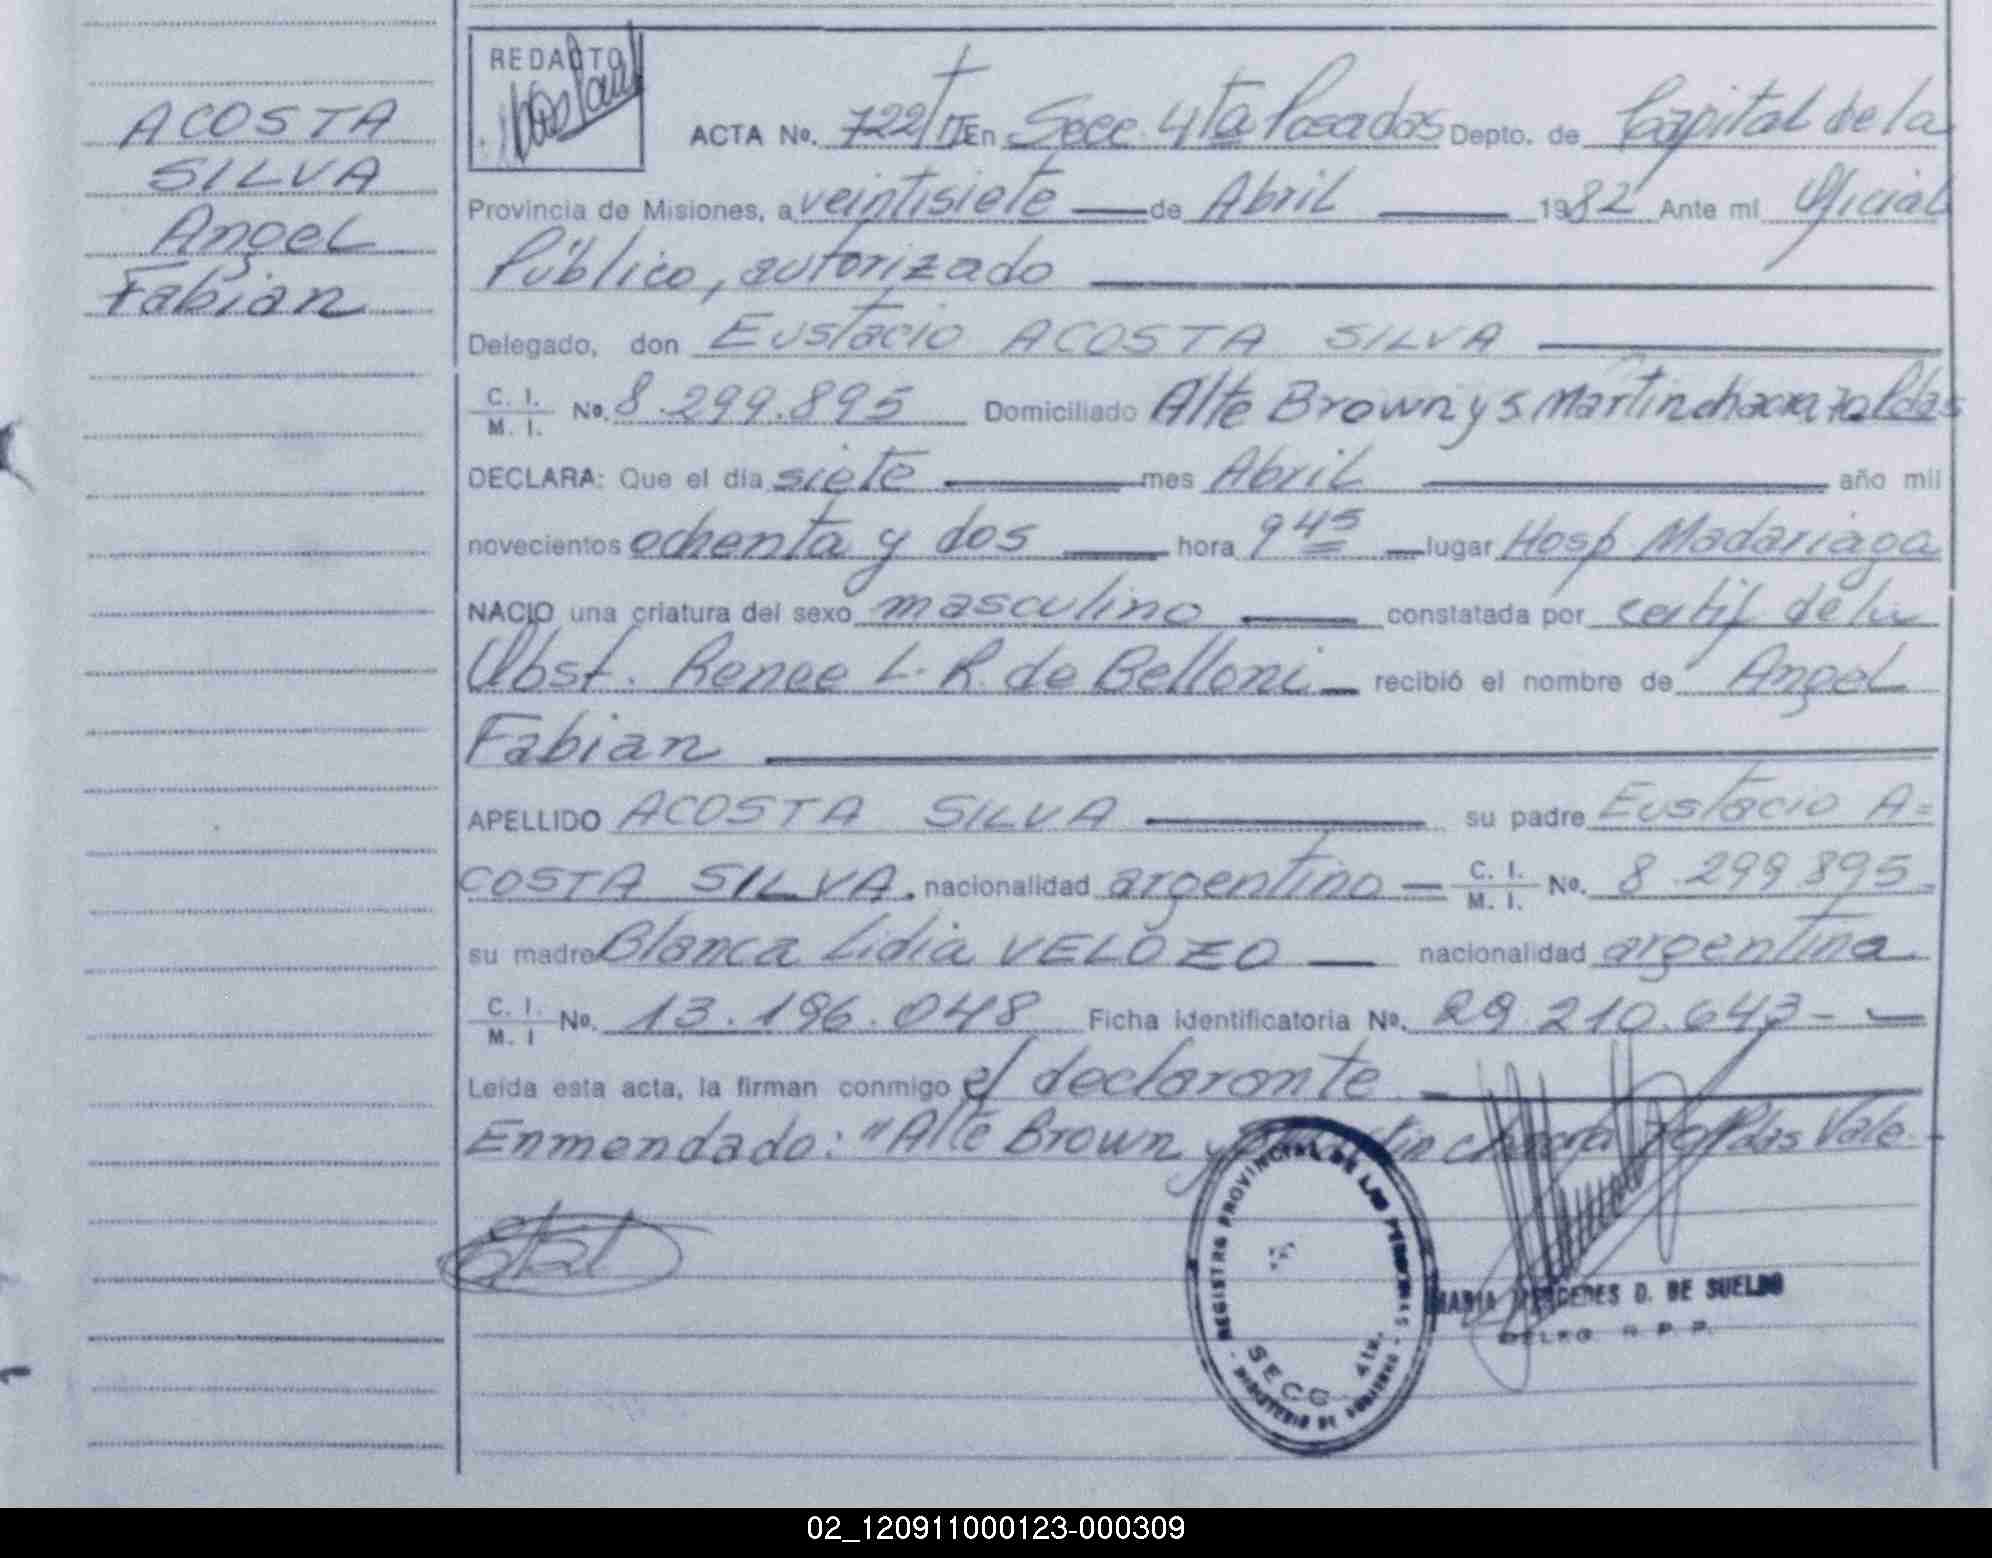 ACOSTA
SILVA
Angel
Fabian
REDACTO
ACTA No. 722/ En Secc. 4ta Posadas Depto. de Capital de la
Provincia de Misiones, a veintisiete de Abril 1982 Ante mi Oficial
Público, autorizado
Delegado, don Eustacio ACOSTA SILVA
C. I. / M. I. No. 8.299.895 Domiciliado Alte Brown y S. Martin chacra 70 Pdas
DECLARA: Que el día siete mes Abril año mil
novecientos ochenta y dos hora 9 45 lugar Hosp Madariaga
NACIO una criatura del sexo masculino constatada por certif de la
Obst. Renee L. R. de Belloni recibió el nombre de Angel
Fabian
APELLIDO ACOSTA SILVA su padre Eustacio A=
COSTA SILVA. nacionalidad argentino C. I. / M. I. No. 8.299.895
su madre Blanca Lidia VELOZO nacionalidad argentina
C. I. / M. I No. 13.196.048 Ficha identificatoria No. 29.210.643
Leída esta acta, la firman conmigo el declarante
Enmendado: "Alte Brown y S. Martin chacra 70 Pdas Vale.
REGISTRO PROVINCIAL DE LAS PERSONAS
SECC. 4ta.
- MINISTERIO DE GOBIERNO -
MARIA MERCEDES D. DE SUELDO
DELEG. R. P. P.
02_120911000123-000309